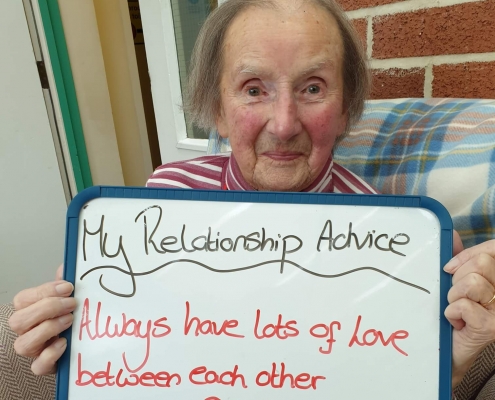 My Relationship Advice
Always have lots of Love
between each other